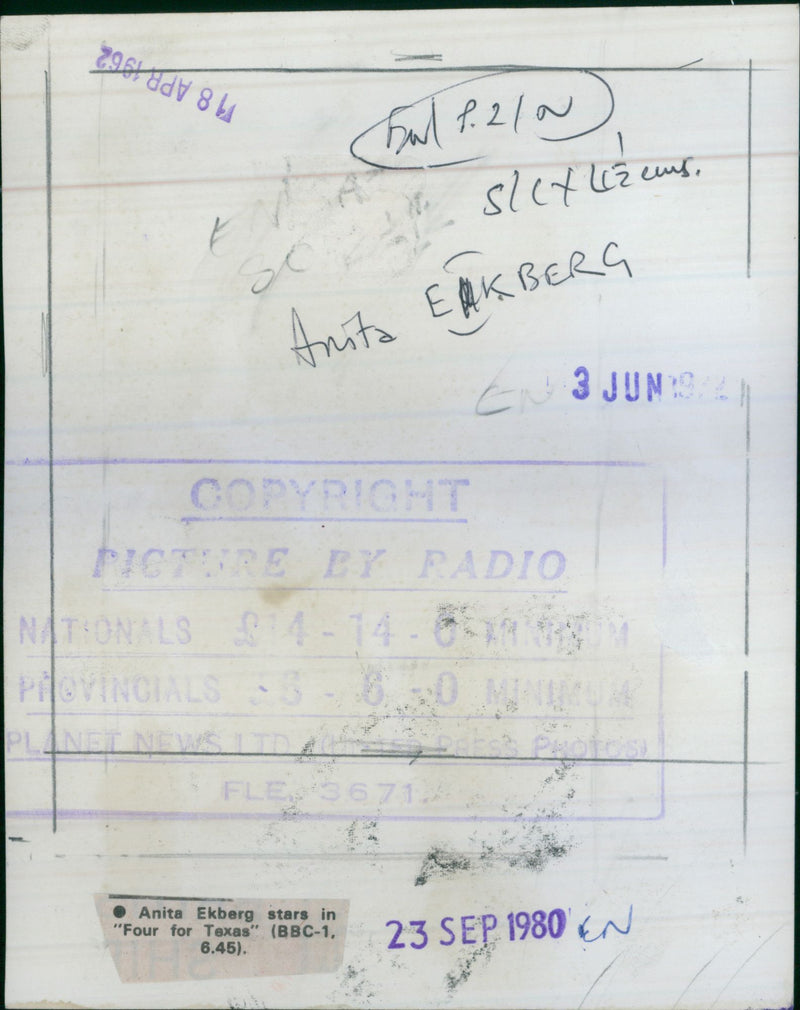 18 APR 1962
P. 2/
S/C X 42 cms.
Anita EKBERG
EN 3 JUN 1972
COPYRIGHT
PICTURE BY RADIO
NATIONALS £ 4 - 14 - 6 MINIMUM
PROVINCIALS - 6 - 0 MINIMUM
PLANET NEWS LTD (UNITED PRESS PHOTOS)
FLE. 3671.
● Anita Ekberg stars in
"Four for Texas" (BBC-1,
6.45).
23 SEP 1980 EN